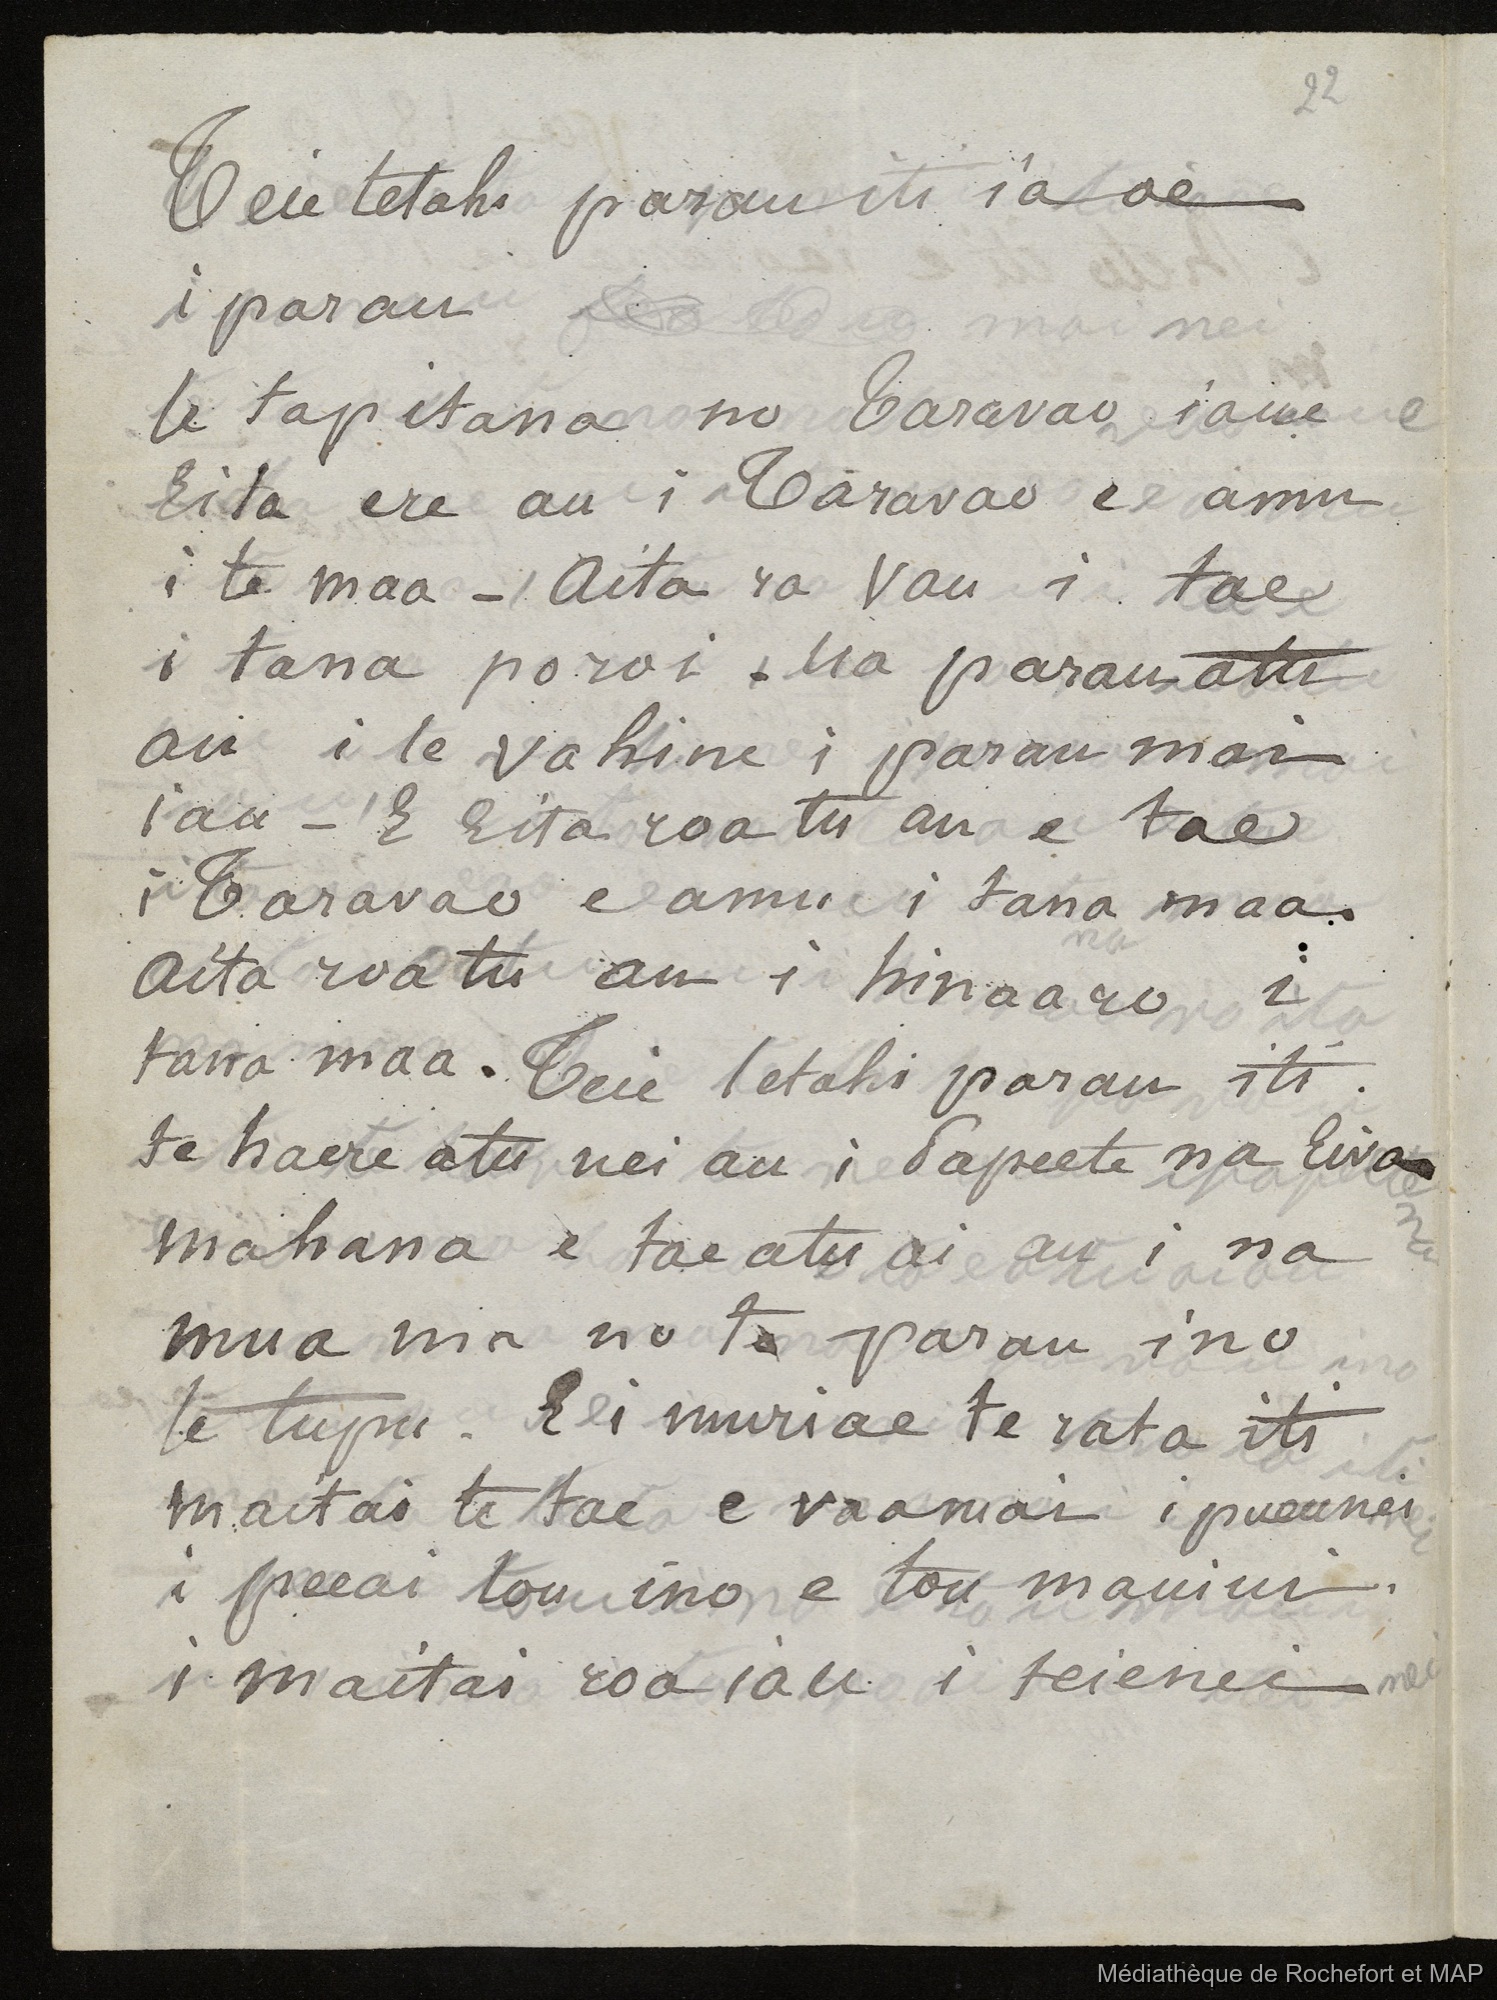 22
Teie tetahi parau iti ia oe
i parau mai nei
te tapitana no Taravao iaue
Eita ere au i Taravao e amu
i te maa - Aita ra vau i tae
i tana poroi . Ua parau atu
au i te vahine i parau mai
iau - E Eita roatu au e tae
i Taravao e amu i tana maa.
Aita roatu au i hinaaro i
tana maa. Teie tetahi parau iti .
te haere atu nei au i Papeete na Eiva
mahana e tae atu ai au i na
mua ma no te parau ino
te tupu. E i muriae te rata iti
maitai te tae e vaamai i
i peeai tou ino e tou mauiui.
i maitai roa iau i teienei
Médiathèque de Rochefort et MAP